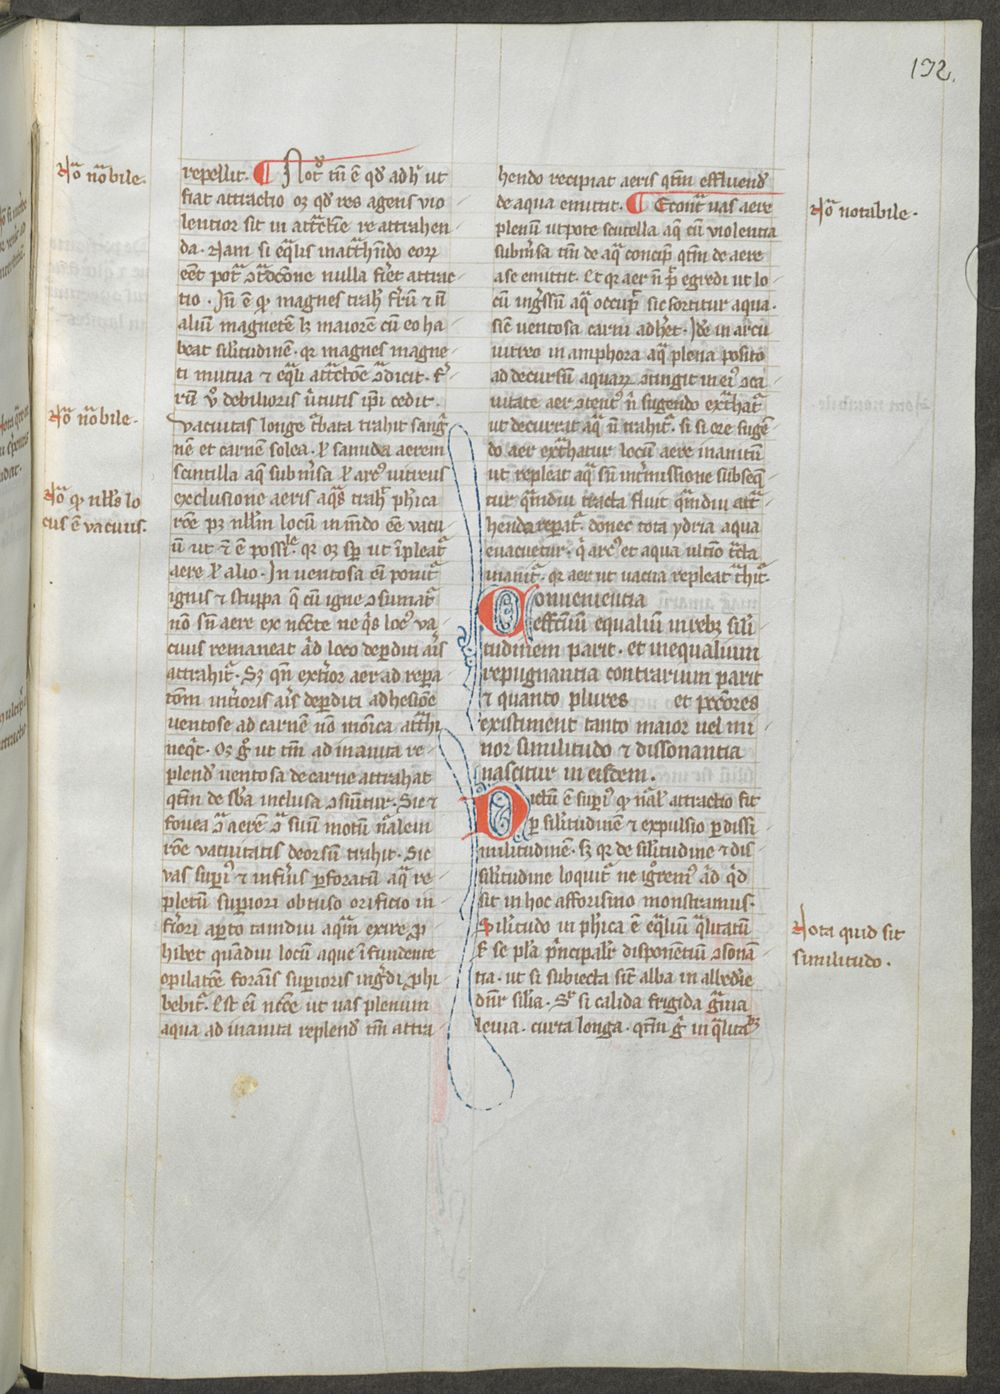 132.
nō nōbile.
repellit. ¶ Not̄ tn̄ ē qd̄ adh̄ ut
fiat attractio oꝫ qd̄ res agens vio
lentior sit in attc̄tiōe re attrahen
da. Nam si eq̄lis
eēt pot̄ nulla fieret attrac
tio. Jn̄ ē qꝫ magnes trah̄ ferrū ⁊ n̄
aliū magnetē lꝫ maiorē cū eo ha
beat silitudinē. qꝛ magnes magne
ti mutua ⁊ eq̄li ↄ̄dicit. fer
rū v̄o debilioris ūtutis ip̄i cedit.
nō nōbile.
Vacuitas longe trahit sangui
nē et carnem solea. l̄
scintilla aq̄ submersa l̄ arcꝰ vitreus
nō qꝫ nll̄s lo
cus ē vacuus.
exclusione aeris aq̄s trah̄ ph̄ica
rōe pꝫ nll̄m locū in mūdo eē vacu
ū ut ⁊ ē possile. qꝛ oꝫ sp̄ ut īpleat̄
aere l̄ alio. In ventosa eī ponit̄
ignis ⁊ stuppa q̄ cū igne ↄsumat̄
nō sn̄ aere ex ncc̄te ne q̄s locꝰ va
cuus remaneat ad loco deperditi aīs
attrahit̄. Sꝫ qn̄ ext̄ior aer ad repa
tōm int̄ioris aīs deperditi adhesiōe
ventose ad carnē nō
neq̄t. Oꝫ ḡ ut tm̄ ad inanita re
plend̄ ventosa de carne attrahat
qtm̄ de inclusa ↄsumitur. Sic ⁊
fouea ꝯ̄ aerē ꝯ̄ suū motū nālem
rōe vacuitatis deorsū trahit. Sic
vas suꝑiꝰ ⁊ inferius ꝑforatū aq̄ re
pletū suꝑiori obtuso orificio in
feriori aꝑto tamdiu aquam exire ꝓ
hibet quamdiu locū aque īfundente
opilatōe foraīs suꝑioris inḡdi ꝓhi
bebit̄. Est eī ncc̄e ut vas plenum
aqua ad inanita replend̄ tm̄ attra
hendo recipiat aeris qtm̄ effluend̄
de aqua emittit. ¶ Econt̄ vas aere
nō notabile.
plenū utpote scutella aq̄ cū violentia
subm̄sa tm̄ de aq̄ concip̄ qtm̄ de aere
a se emittit. Et qꝛ aer n̄ p̄t egredi ut lo
cū inḡssū aq̄ occup̄ sic sortitur aqua.
sic ventosa carni adheret. Idē in arcu
vitreo in amphora aq̄ plena posito
ad decursū aquaꝝ ↄtingit in eiꝰ ↄca
uitate aer ↄtentꝰ n̄ sugendo ext̄hat̄
ut decurrat aq̄ n̄ trahit̄. si si ore sugē
do aer ext̄hatur locū aere inanitū
ut repleat aq̄ sn̄ int̄missione subseq̄
tur q̄mdiu tracta fluit q̄mdiu att̄
henda donec tota ydria aqua
euacuetur. q̄ arcꝰ et aqua ultīo tc̄ta
inanit̄. qꝛ aer ut vacua repleat t̄hit̄.
Conuenientia
effectiuū equaliū in rebꝫ sili
tudinem parit. et inequalium
repugnantia contrarium parit
⁊ quanto plures et
existiment tanto maior uel mi
nor similitudo ⁊ dissonantia
nascitur in eisdem.
Dictū ē suꝑiꝰ qꝫ nāl̄ attractio fit
ꝑ silitudinē ⁊ expulsio ꝑ dissi
militudinē. sꝫ qꝛ de silitudine ⁊ dis
silitudine loquit̄ ne ad qd̄
sit in hoc afforismo monstramus.
Silitudo in ph̄ica ē eq̄liū q̄litatū
Nota quid sit
similitudo.
l̄ se pl̄a p̄ncipalr̄ disponentiū ↄsonā
tia. ut si subiecta sint alba in albedīe
dn̄r silia. Sr̄ si calida frigida grauia
leuia. curta longa. qtm̄ ḡ in q̄litatibꝫ